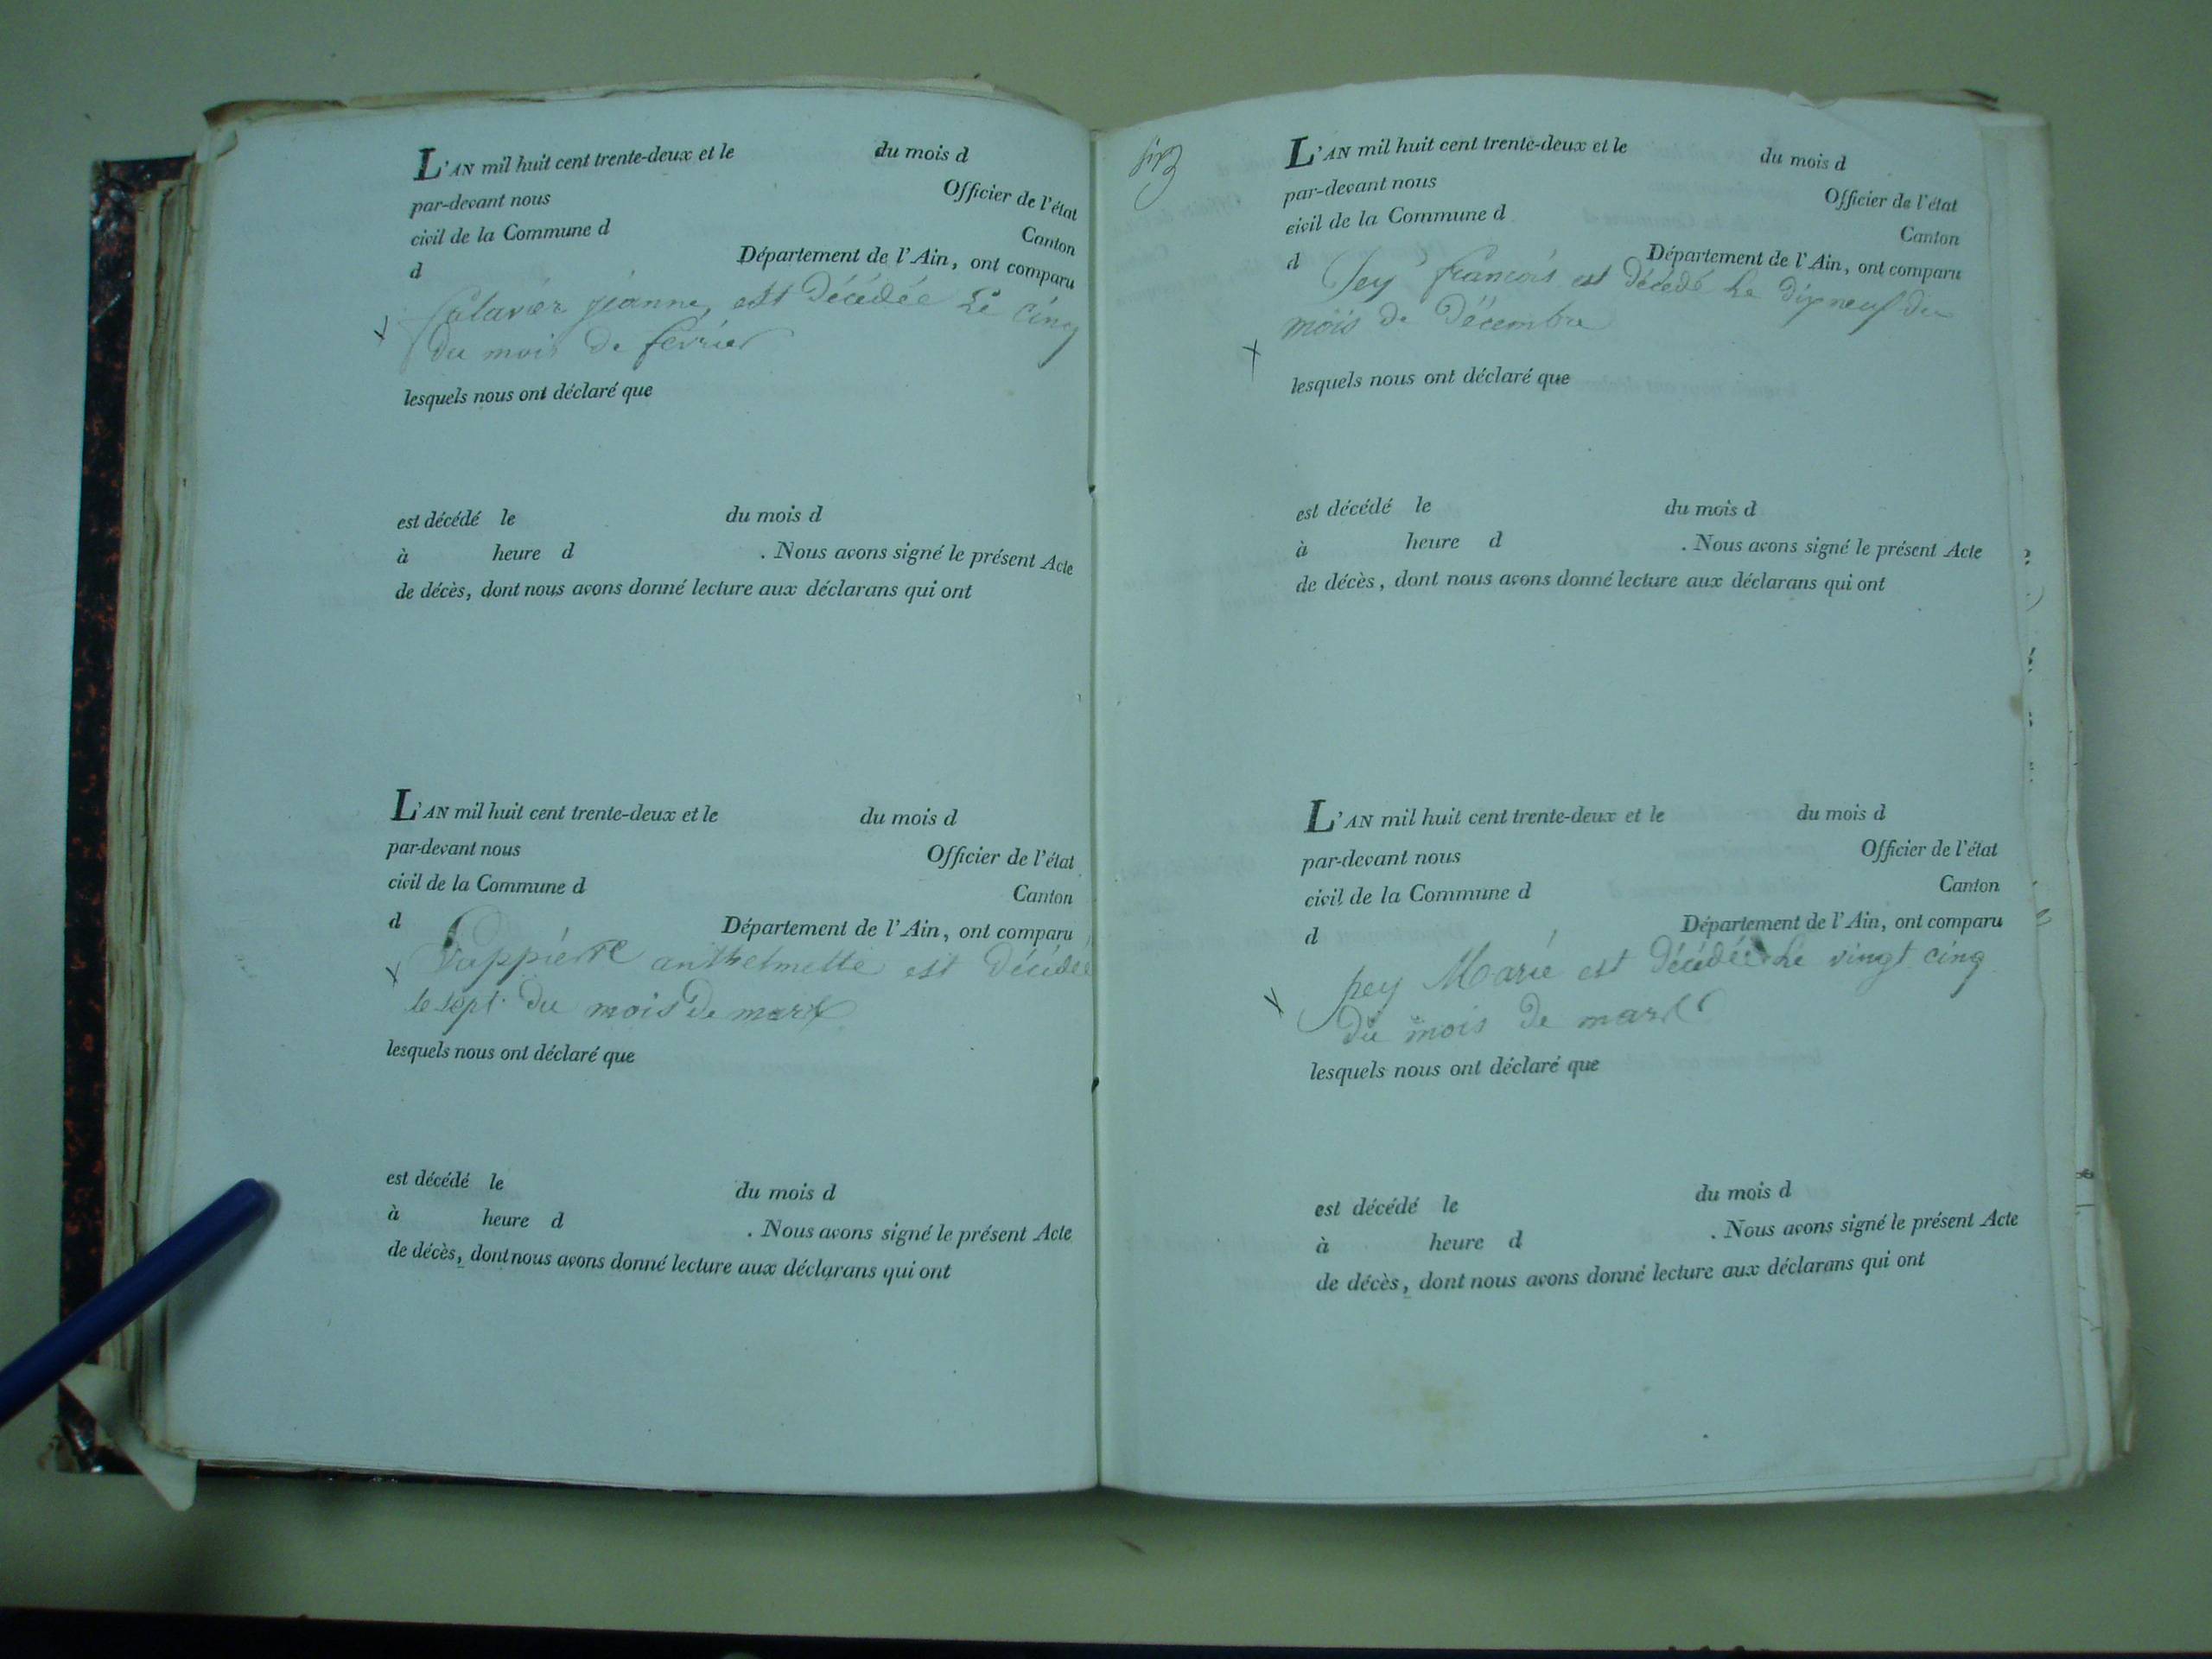 L'AN mil huit cent trente-deux et le du mois d
par-devant nous Officier de l'état
civil de la Commune d Canton
d Département de l'Ain, ont comparu
jeanne est Décédée Le Cinq
Du mois De fevrier
lesquels nous ont déclaré que
est décédé le du mois d
à heure d . Nous avons signé le présent Acte
de décès, dont nous avons donné lecture aux déclarans qui ont
L'AN mil huit cent trente-deux et le du mois d
par-devant nous Officier de l'état
civil de la Commune d Canton
d Département de l'Ain, ont comparu
anthelmette est Décédée
le sept Du mois De mars
lesquels nous ont déclaré que
est décédé le du mois d
à heure d . Nous avons signé le présent Acte
de décès, dont nous avons donné lecture aux déclarans qui ont
six
L'AN mil huit cent trente-deux et le du mois d
par-devant nous Officier de l'état
civil de la Commune d Canton
d Département de l'Ain, ont comparu
francois est Décédé Le dixneuf du
mois De Décembre
lesquels nous ont déclaré que
est décédé le du mois d
à heure d . Nous avons signé le présent Acte
de décès, dont nous avons donné lecture aux déclarans qui ont
L'AN mil huit cent trente-deux et le du mois d
par-devant nous Officier de l'état
civil de la Commune d Canton
d Département de l'Ain, ont comparu
Marie est Décédée Le vingt cinq
Du mois De mars
lesquels nous ont déclaré que
est décédé le du mois d
à heure d . Nous avons signé le présent Acte
de décès, dont nous avons donné lecture aux déclarans qui ont